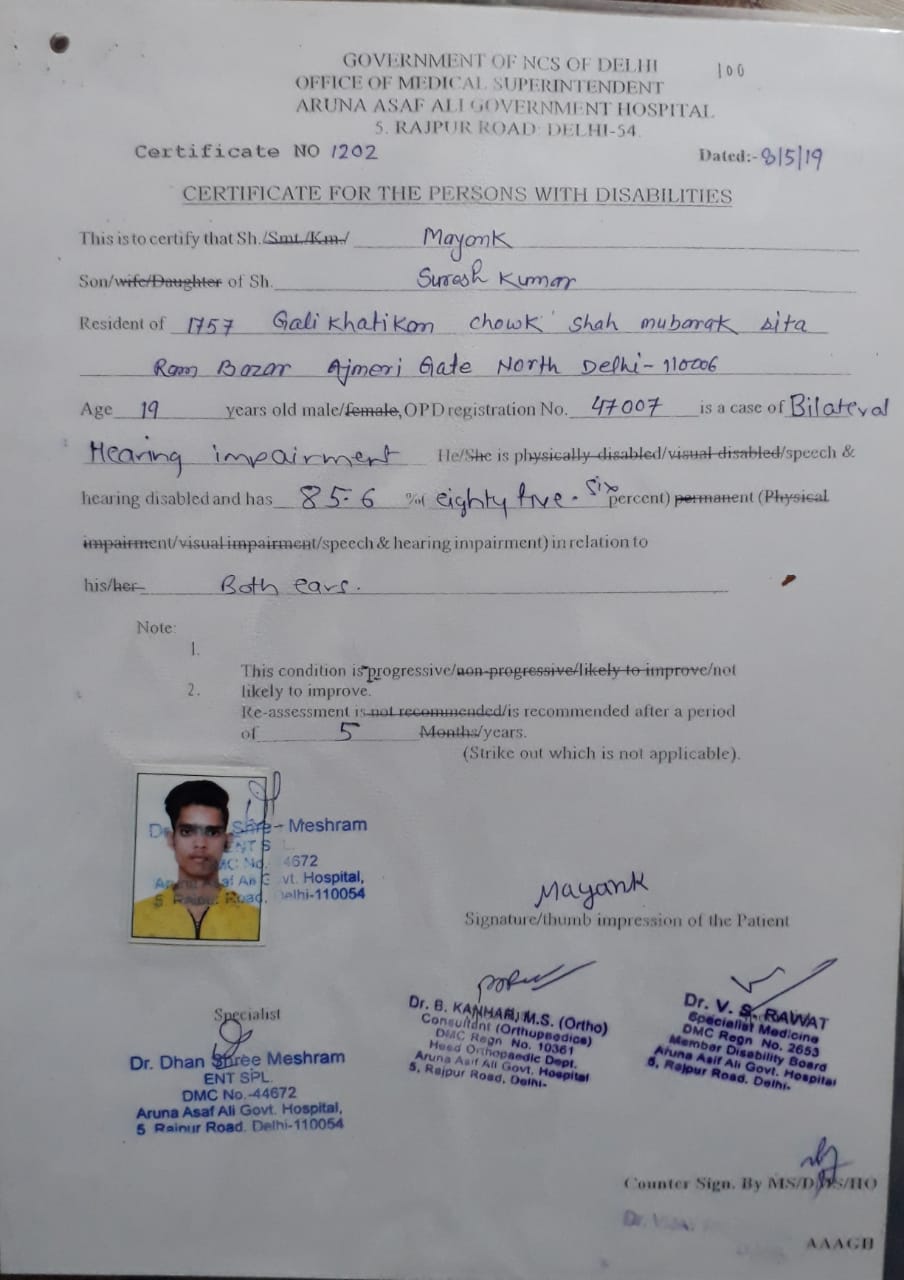 GOVERNMENT OF NCS OF DELHI
100
OFFICE OF MEDICAL SUPERINTENDENT
ARUNA ASAF ALI GOVERNMENT HOSPITAL
5. RAJPUR ROAD: DELHI-54.
Certificate NO 1202
Dated:- 8/5/19
CERTIFICATE FOR THE PERSONS WITH DISABILITIES
This is to certify that Sh./Smt./Km./ Mayank
Son/wife/Daughter of Sh. Suresh Kumar
Resident of 1757 Gali Khatikan chowk shah mubarak sita
Ram Bazar Ajmeri Gate North Delhi-110006
Age 19 years old male/female, OPD registration No. 47007 is a case of Bilateral
Hearing impairment He/She is physically disabled/visual disabled/speech &
hearing disabled and has 85.6 % of eighty five. six percent) permanent (Physical
impairment/visual impairment/speech & hearing impairment) in relation to
his/her Both ears.
Note:
1.
This condition is progressive/non-progressive/likely to improve/not
2. likely to improve.
Re-assessment is not recommended/is recommended after a period
of 5 Months/years.
(Strike out which is not applicable).
Shree Meshram
ENT S L.
MC No. 4672
Aruna Asaf Ali G vt. Hospital,
5 Rajpur Road, Delhi-110054
Mayank
Signature/thumb impression of the Patient
Specialist
Dr. Dhan Shree Meshram
ENT SPL.
DMC No.-44672
Aruna Asaf Ali Govt. Hospital,
5 Rajpur Road. Delhi-110054
Dr. B. KANHAR, M.S. (Ortho)
Consultant (Orthopaedics)
DMC Regn No. 10361
Head Orthopaedic Dept.
Aruna Asif Ali Govt. Hospital
5, Rajpur Road, Delhi-
Dr. V. S. RAWAT
Specialist Medicine
DMC Regn. No. 2653
Member Disability Board
Aruna Asif Ali Govt. Hospital
5, Rajpur Road. Delhi-
Counter Sign. By MS/DMS/HO
Dr.
AAAGH